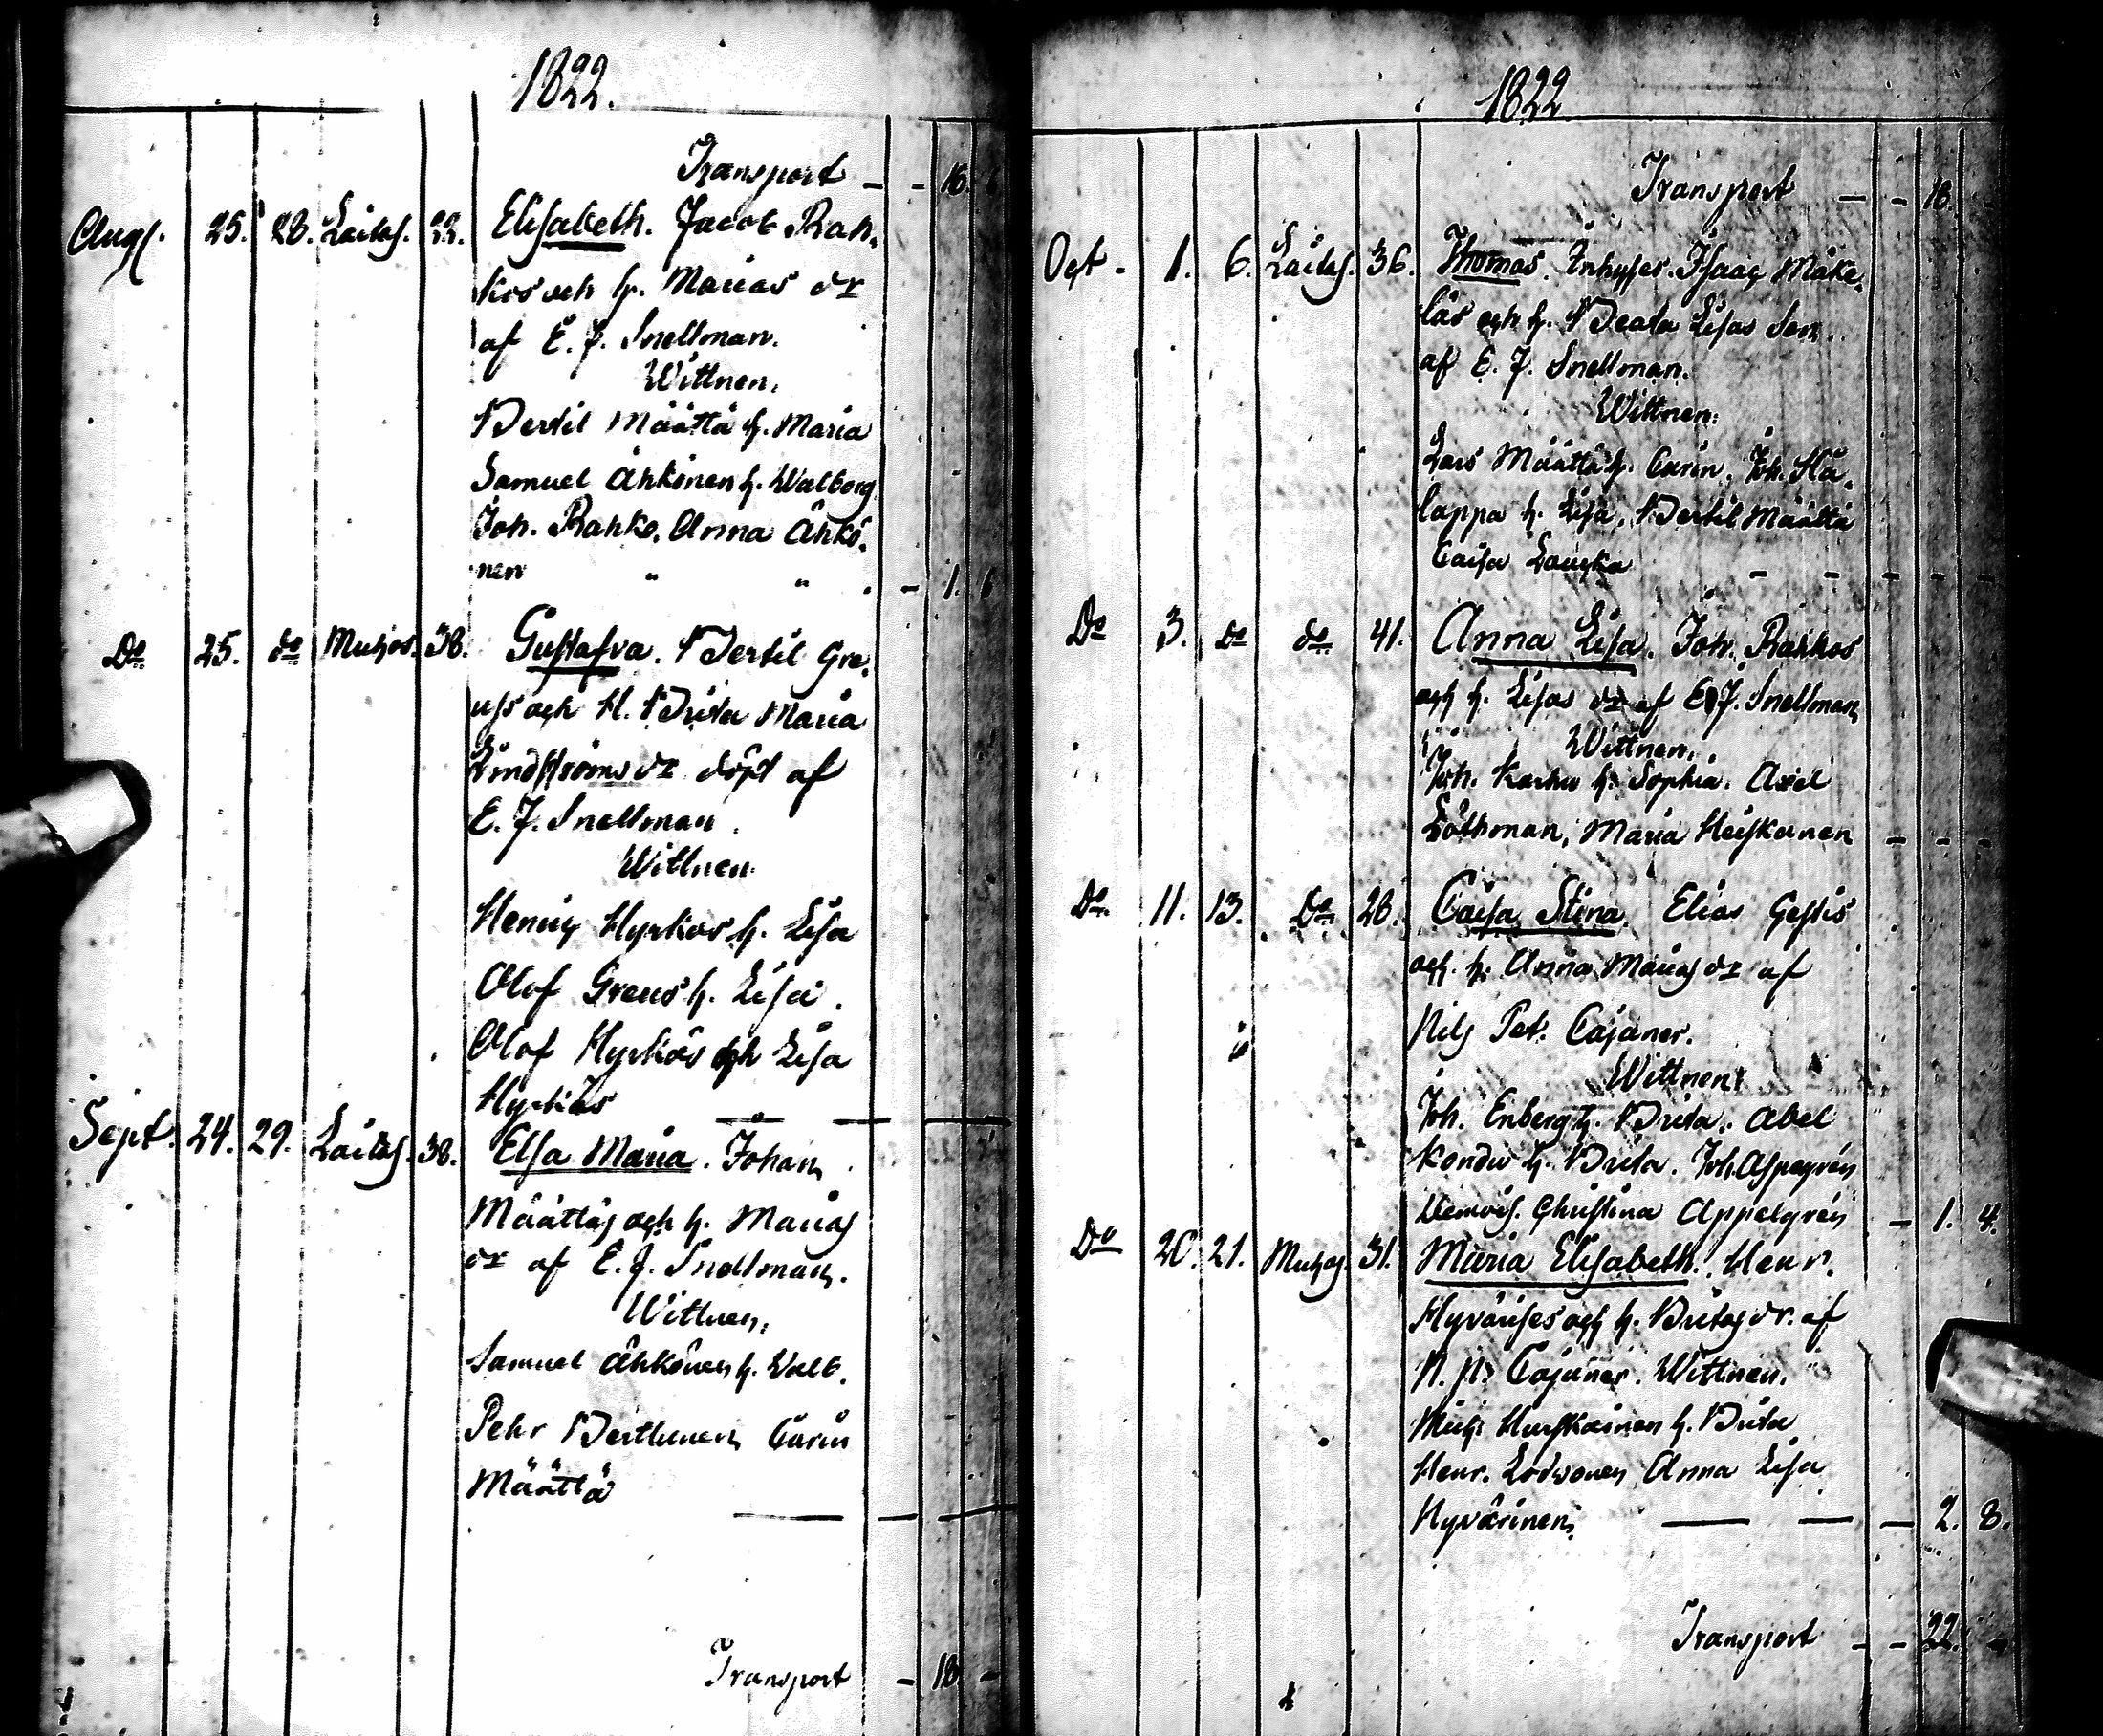 1822.
Transport - - 16. 6
Augs. 25. 28. Laitas. 22. Elisabeth. Jacob Rah-
kos och h. Marias dr
af E. J. Snellman.
Wittnen,
Bertil Määttä h. Maria
Samuel Ähkönen h. Walborg
Joh. Rahko. Anna Ähkö-
nen " " - 1. 6
Do 25. do Muhos. 38. Gustafva. Bertil Gre-
uss och H. Brita Maria
Lindströms dr döpt af
E. J. Snellman.
Wittnen.
Henric Hyrkäs h. Lisa
Olof Greus h. Lisa.
Olof Hyrkäs och Lisa
Hyrkäs
Sept. 24. 29. Laitas. 38. Elsa Maria. Johan
Määttäs och h. Marias
dr af E. J. Snellman.
Wittnen,
Samuel Ähkönen h. Valb.
Pehr Berthunen Carin
Määttä
Transport - 18 -
1822
Transport - - 18.
Oct. 1. 6. Laitas. 36. Thomas. Inhyses. Isaac Mäke-
läs och h. Beata Lisas Son.
af E. J. Snellman.
Wittnen:
Lars Määttä h. Carin. Joh. Hä-
lappa h. Lisa. Bertil Määttä
Caisa
Do 3. do do 41. Anna Lisa. Joh. Rahkos
och h. Lisas dr af E. J. Snellman
Wittnen,
Joh. Karhu h. Sophia. Axel
Löthman, Maria Heiskanen
Do. 11. 13. Do 26. Caisa Stina. Elias Gestis
och h. Anna Marias dr af
Nils Pet. Cajaner.
Wittnen:
Joh. Enberg h. Brita. Abel
Kondu h. Brita. Joh. Aspegrén
Demois. Christina Appelgrén - 1. 4.
Do 20. 21. Muhos. 31. Maria Elisabeth. Henr.
Hyvärises och h. Britas dr. af
N. P. Cajaner. Wittnen.
Mich. Hurskainen h. Brita
Henr. Anna Lisa
Hyvärinen. 2. 8.
Transport - - 22. -